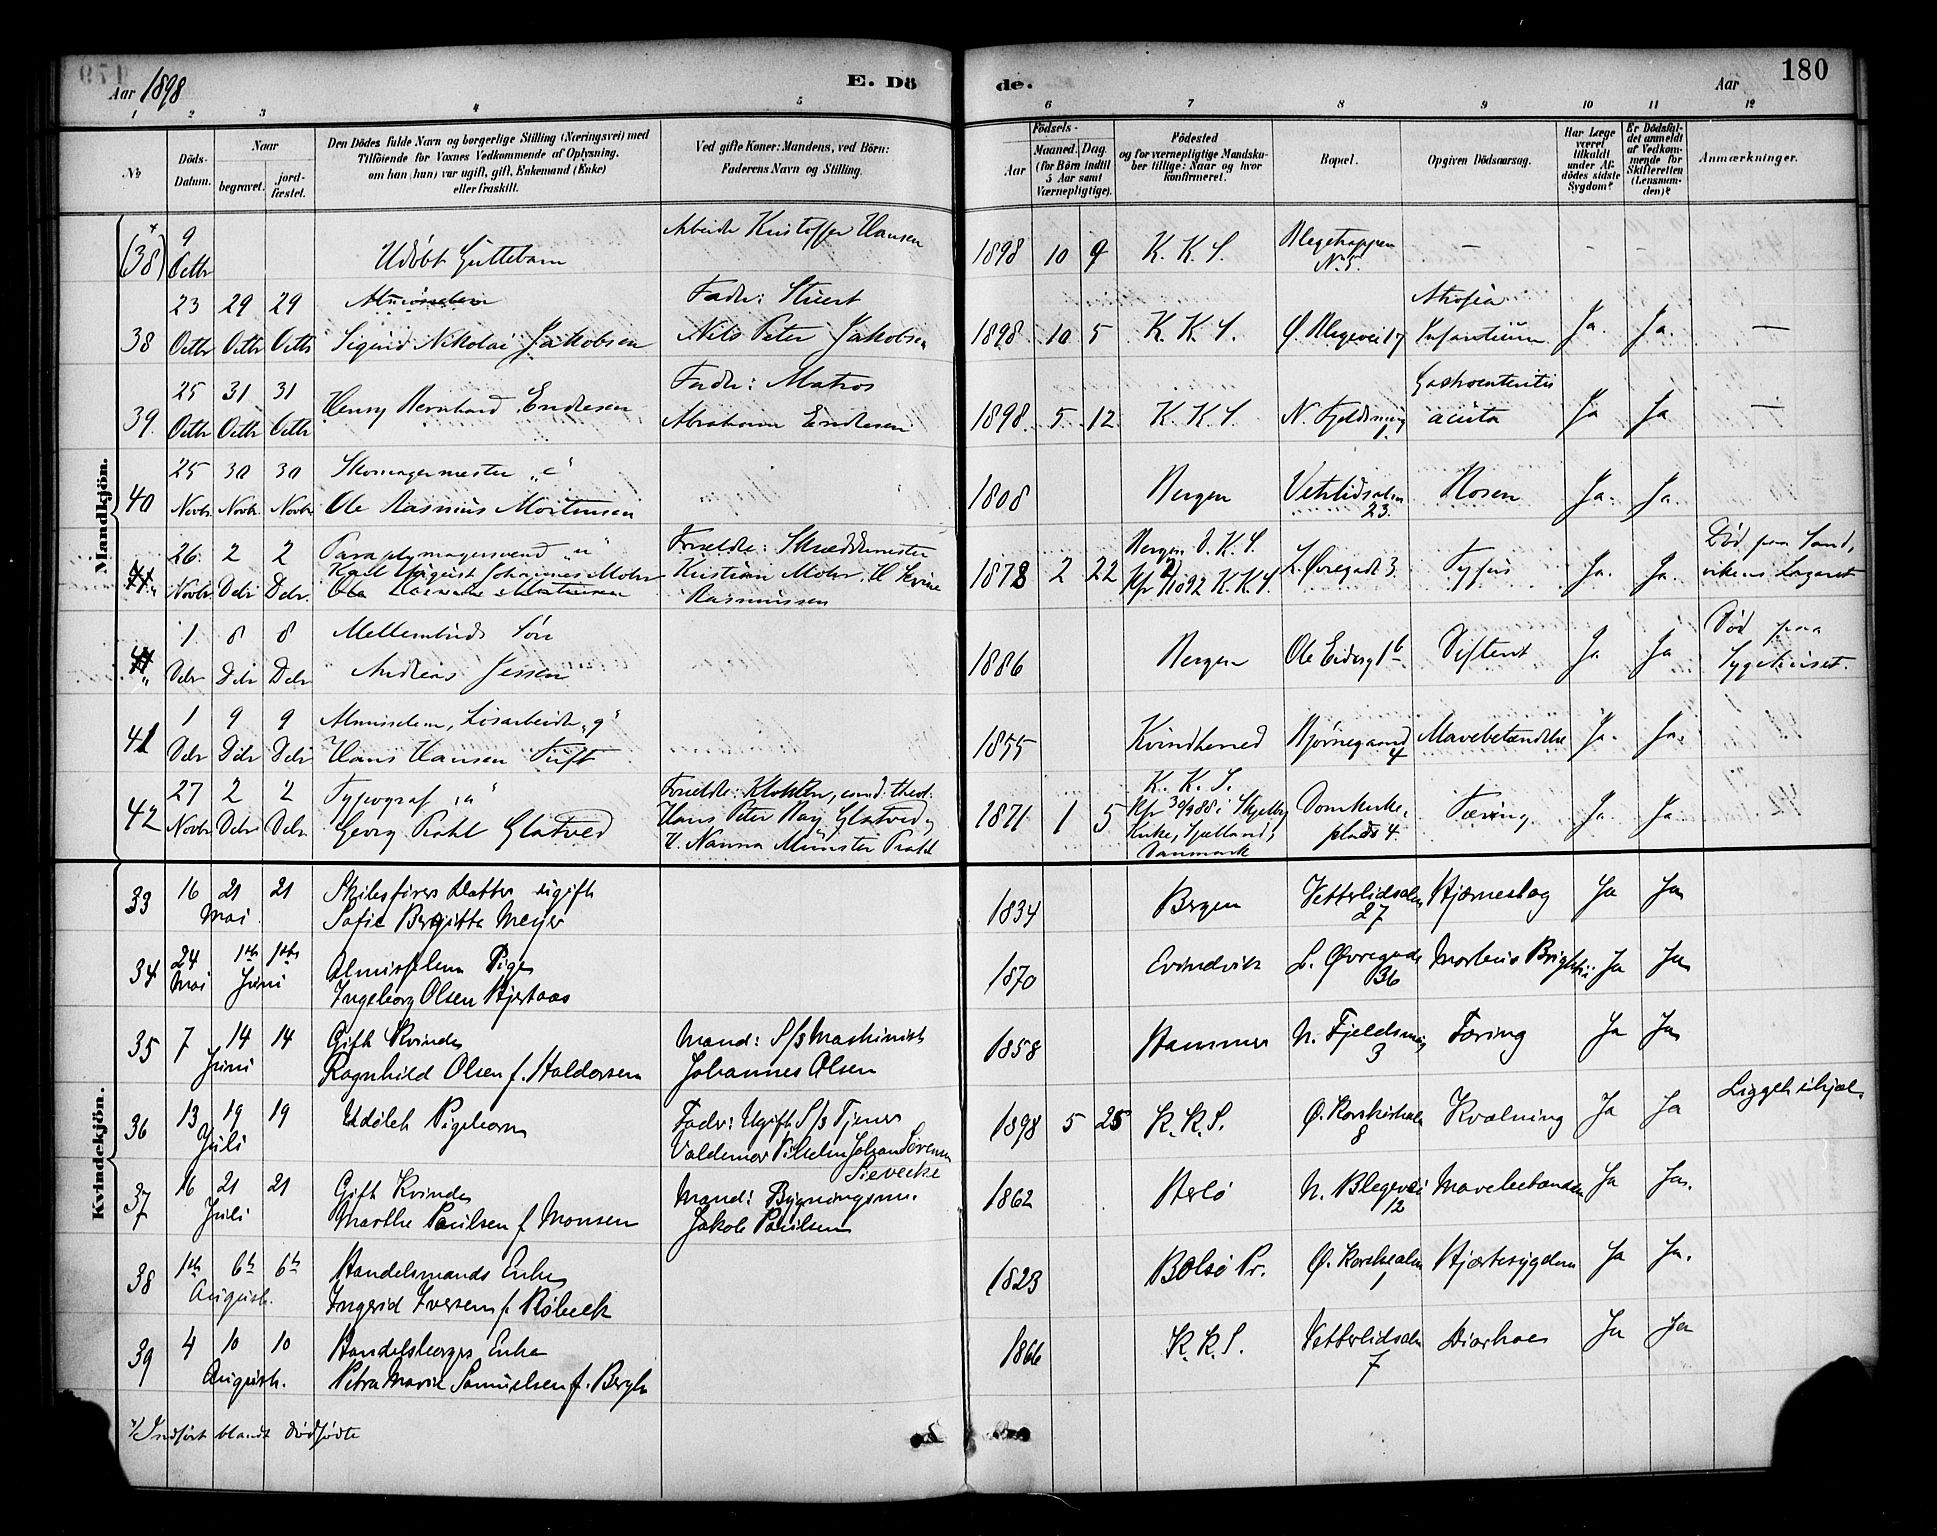 Aar 1898
E. Dö
de.
Aar
180
1 2 3 4 5 6 7 8 9 10 11 12
No
Döds-
Datum.
Naar
begravet.
jord-
fæstet.
Den Dödes fulde Navn og borgerlige Stilling (Næringsvei) med
Tilföiende for Voxnes Vedkommende af Oplysning,
om han (hun) var ugift, gift, Enkemand (Enke)
eller fraskilt.
Ved gifte Koner: Mandens, ved Börn:
Faderens Navn og Stilling.
Födsels-
Aar
Maaned. Dag.
(for Börn indtil
5 Aar samt
Værnepligtige).
Födested
og for værnepligtige Mandska-
ber tillige: Naar og hvor
konfirmeret.
Bopæl.
Opgiven Dödsaarsag.
Har Læge
været
tilkaldt
under Af-
dödes sidste
Sygdom?
Er Dödsfal-
det anmeldt
af Vedkom-
mende for
Skifteretten
(Lensman-
den)?
Anmærkninger.
Mandkjön.
(38) 9 Octbr Udøbt Guttebarn Arbeider Kristoffer Hansen 1898 10 9 K. K. S. Blegetrappen No 5. — — —
38 23 Octbr 29 Octbr 29 Octbr Sigurd Nikolai Jakobsen Fader: Stuert Nils Peter Jakobsen 1898 10 5 K. K. S. Ø. Blegevei 17 Atrofia Infantium Ja. Ja. —
39. 25 Octbr 31 Octbr 31 Octbr Henry Bernhard Endresen Fader: Matros Abraham Endresen 1898 5 12 K. K. S. N. Fjeldsmug 1 Gastroenteritis acuta Ja Ja —
40 25 Novbr 30 Novbr. 30 Novbr. Skomagermester "e" Ole Rasmus Mortensen 1808 Bergen Vetrlidsalm 23. Rosen Ja. Ja.
26. Novbr 2 Debr 2 Debr. Paraplymagersvend "u" Karl August Johannes Mohr Forældre: Skræddermester Kristian Mohr. H. Rasmussen 1878 2 22 Bergen D. K. S. K. K. S. L. Øvregade 3. Tyfus Ja. Ja. Død paa Sand- vikens Lazaret
1 Debr 8 Debr 8 Debr Mellembuds Søn Andreas Jessen 1886 Bergen Ole Difterit Ja Ja Død paa Sygehuset.
41 1 Debr 9 Debr 9 Debr Almisselem, Løsarbeider "g" Hans Hansen Tuft 1855 Kvindherred Bjørnegaard 4 Mavebetændelse Ja. Ja.
42 27 Novbr 2 Debr 2 Debr. Typograf "u" Georg Prahl Glatved Forældre: Klokker, cand. theol. Hans Peter Glatved, H. Nanna Münster Prahl 1871 1 5 K. K. S. Kirke, Sjælland, Danmark Domkirke- plads 4. Tæring Ja. Ja.
Kvindekjön.
33 16 21 21 Mai Skibsførers Datter ugift Sofie Bergitta Meyer 1834 Bergen Vetterlidsalm 27 Hjærneslag Ja Ja
34 24 Mai 1ste 1ste Juni Almisselem Pige Ingeborg Olsen Hjertaas 1870 Evindvik L. Øvregade 36 Morbus Brightii Ja Ja
35 7 14 14 Juni Gift Kvinde Ragnhild Olsen f. Haldorsen Mand: S/s Maskinist Johannes Olsen 1858 Hammer N. Fjeldsmug 3 Tæring Ja Ja
36 13 19 19 Juli Udøbt Pigebarn Fader: Ugift S/s Tjener Valdemar Vilhelm Johan Sørensen Sievecke 1898 5 25 K. K. S. Ø. 8 Kvælning Ja Ja Ligget ihjæl
37 16 21 21 Juli Gift Kvinde Marthe Paulsen f. Monsen Mand: Bygningsm. Jakob Paulsen 1862 Herlö N. Blegevei 12 Mavebetændelse Ja Ja.
38 1ste 6te 6te August. Handelsmands Enke Ingerid Iversen f. Røbeck 1823 Bolsø Pr. Ø. Korskirkealm 1 Hjærtesygdom Ja Ja.
39 4 10 10 August. Handelsborgers Enke Petra Marie Samuelsen f. Bergh 1866 K. K. S. Vetterlidsalm 7 Diarhoe Ja Ja
x/ Indført blandt dødfødte